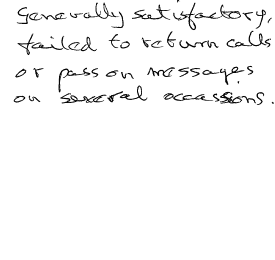 Generally satisfactory,
failed to return calls
or pass on messages
on several occassions.